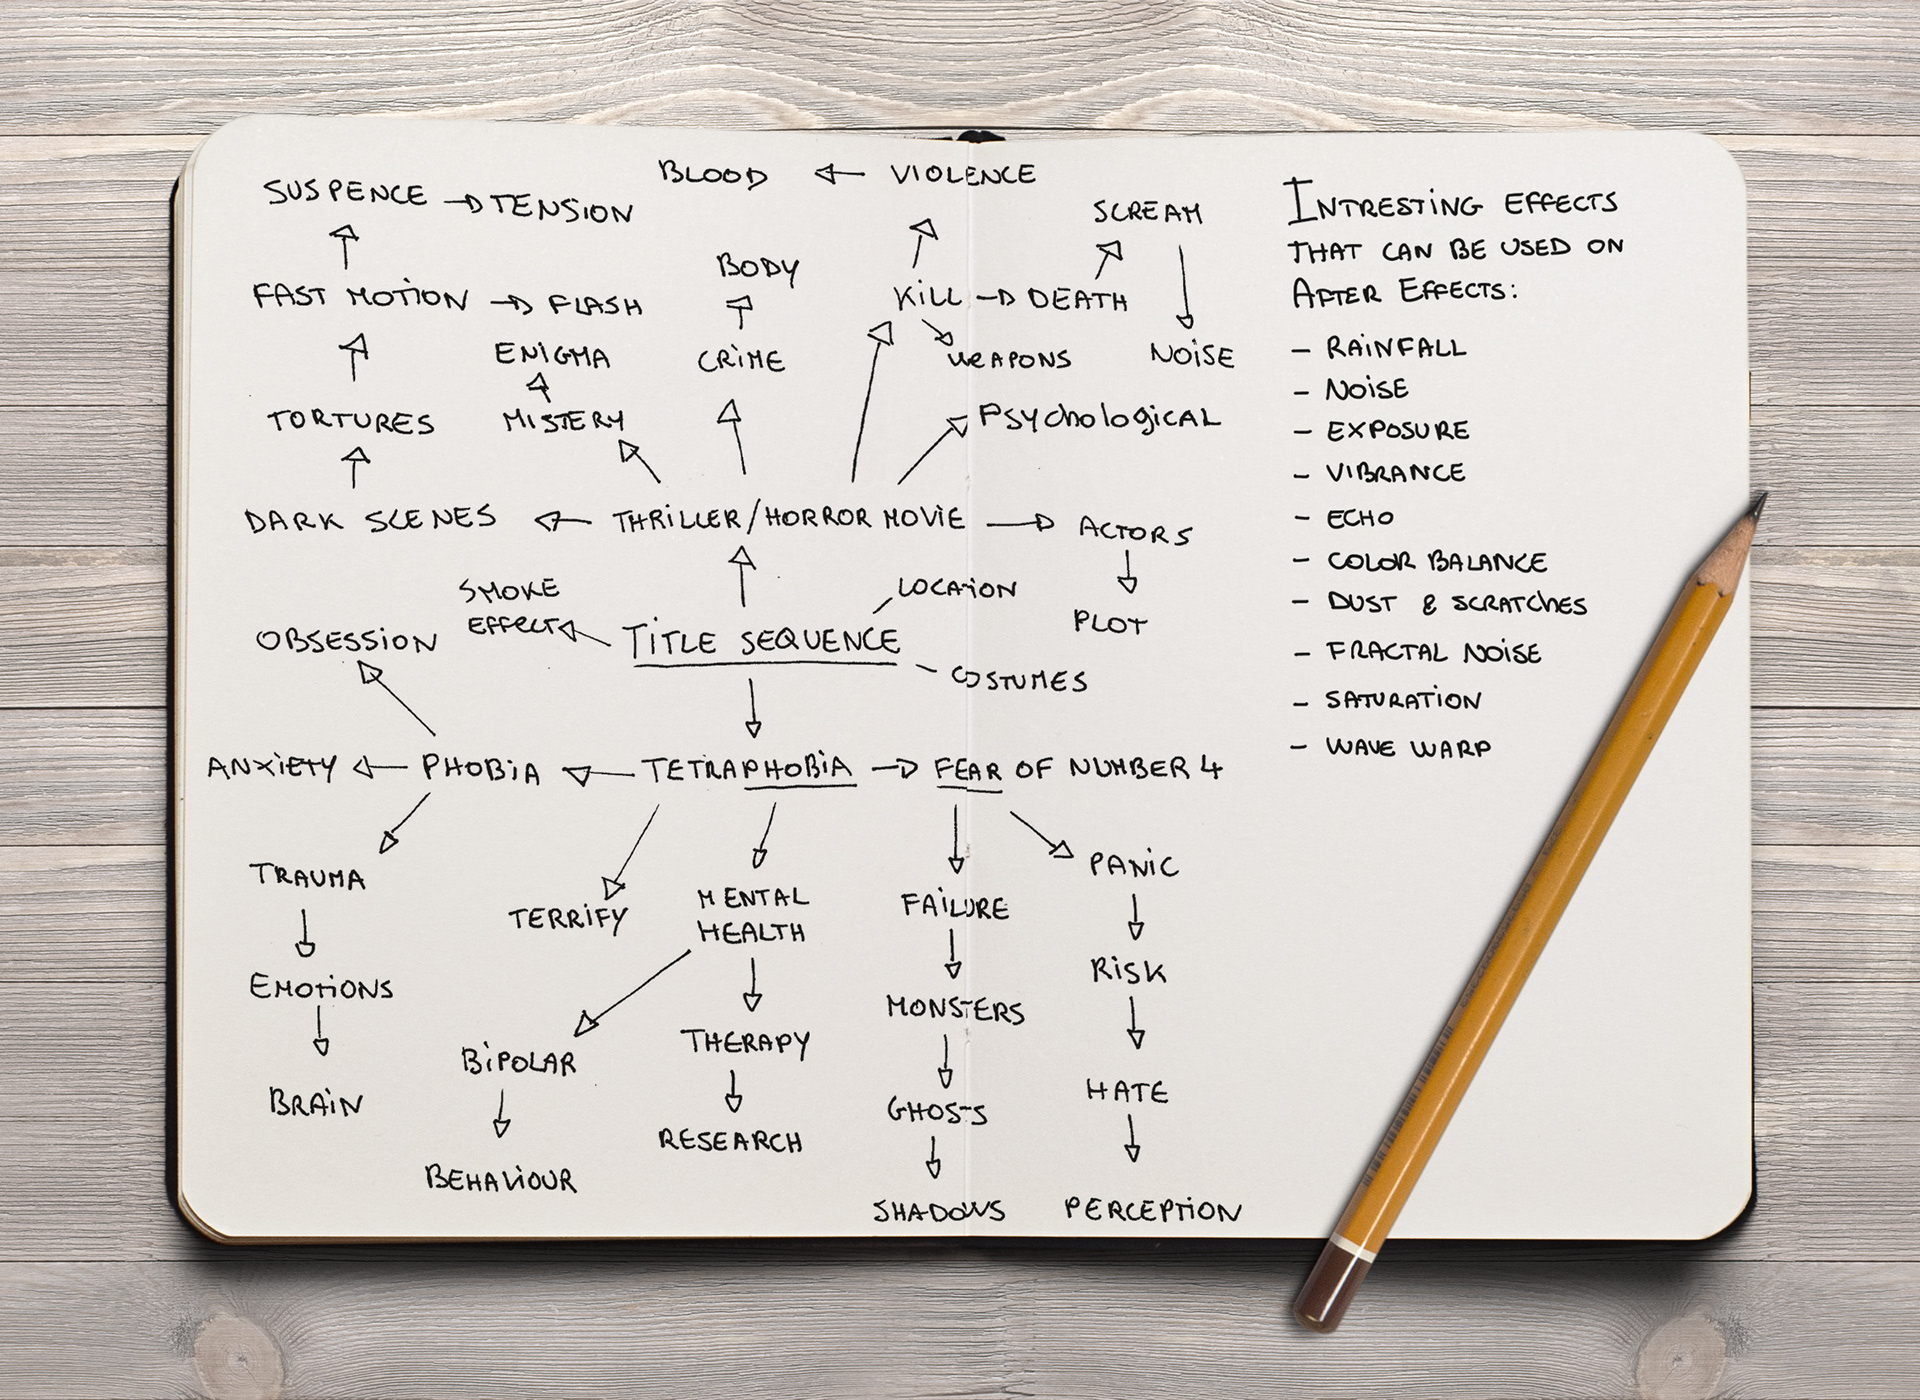 BLOOD ← VIOLENCE
SUSPENCE → TENSION
SCREAM
BODY
FAST MOTION → FLASH
KILL → DEATH
ENIGMA
CRIME
WEAPONS
NOISE
TORTURES
MISTERY
PSYchological
DARK SCENES ← THRILLER/HORROR MOVIE → ACTORS
SMOKE
EFFECT
LOCATION
PLOT
OBSESSION
TITLE SEQUENCE
COSTUMES
ANXIETY ← PHOBIA ← TETRAPHOBIA → FEAR OF NUMBER 4
TRAUMA
TERRIFY
MENTAL
HEALTH
FAILURE
PANIC
EMOTIONS
MONSTERS
RISK
BIPOLAR
THERAPY
BRAIN
GHOSTS
HATE
BEHAVIOUR
RESEARCH
SHADOWS
PERCEPTION
INTRESTING EFFECTS
THAT CAN BE USED ON
AFTER EFFECTS:
- RAINFALL
- NOISE
- EXPOSURE
- VIBRANCE
- ECHO
- COLOR BALANCE
- DUST & SCRATCHES
- FRACTAL NOISE
- SATURATION
- WAVE WARP